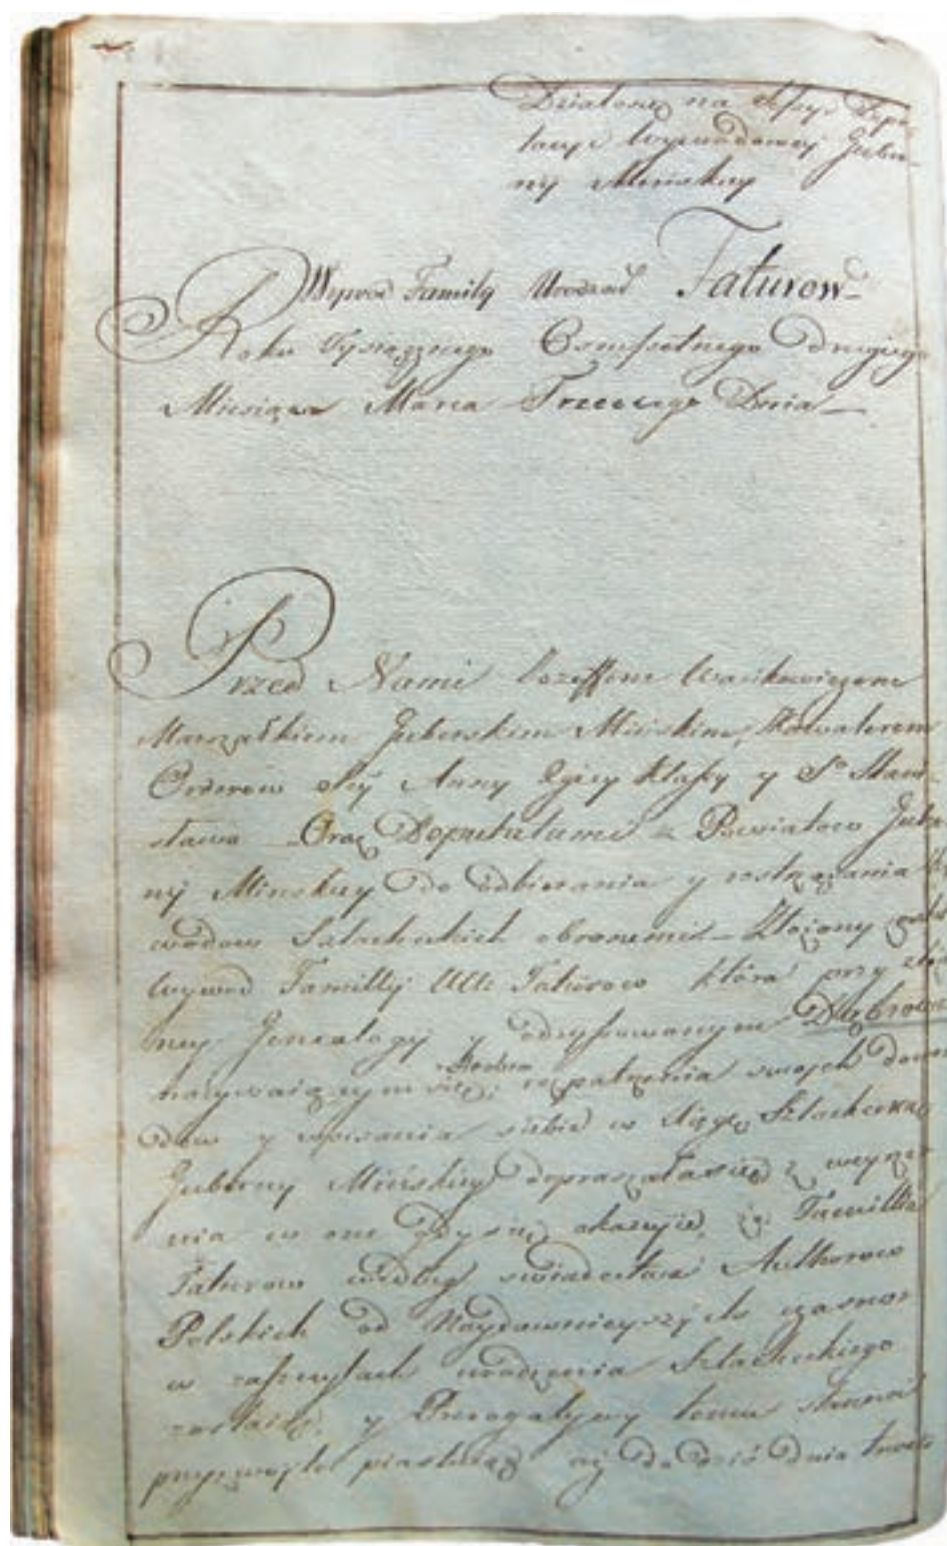 Działosię na Sessyi Depu-
tacyi Wywodowey Guber-
nij Minskiey
Wywod Familij Urodzod Faturow
Roku Tysiącznego Osmsetnego drugiego
Miesiąca Marca Trzeciego Dnia
Przed Nami Jozeffem Wankowiczem
Marszałkiem Guberskim Mińskim, Kawalerem
Orderow Stey Anny Klassy y Sgo Stani-
sława Oraz Deputatami z Powiatow Guber
nij Minskiey do odbierania y roztrząsania
wodow Szlacheckich obranemi Złożony
Wywod Familij UUr Faturow która przy
ney Genealogy y odrysowanym Dąbrowa
nazywaiącym się Herbem rozpatrzenia swoich dowo
dow y wpisania siebie w Xięgę Szlachecką
Gubernij Mińskiey dopraszałasię z weyrze
nia w one gdysię okazuie, iż Familia
Faturow według swiadectwa Authorow
Polskich od Naydawnieyszych czasow
w zaszczytach urodzenia Szlacheckiego
zostaiąc, y Prerogatywy temu stanowi
przyzwoite piastuiąc aż do dziś dnia trwa